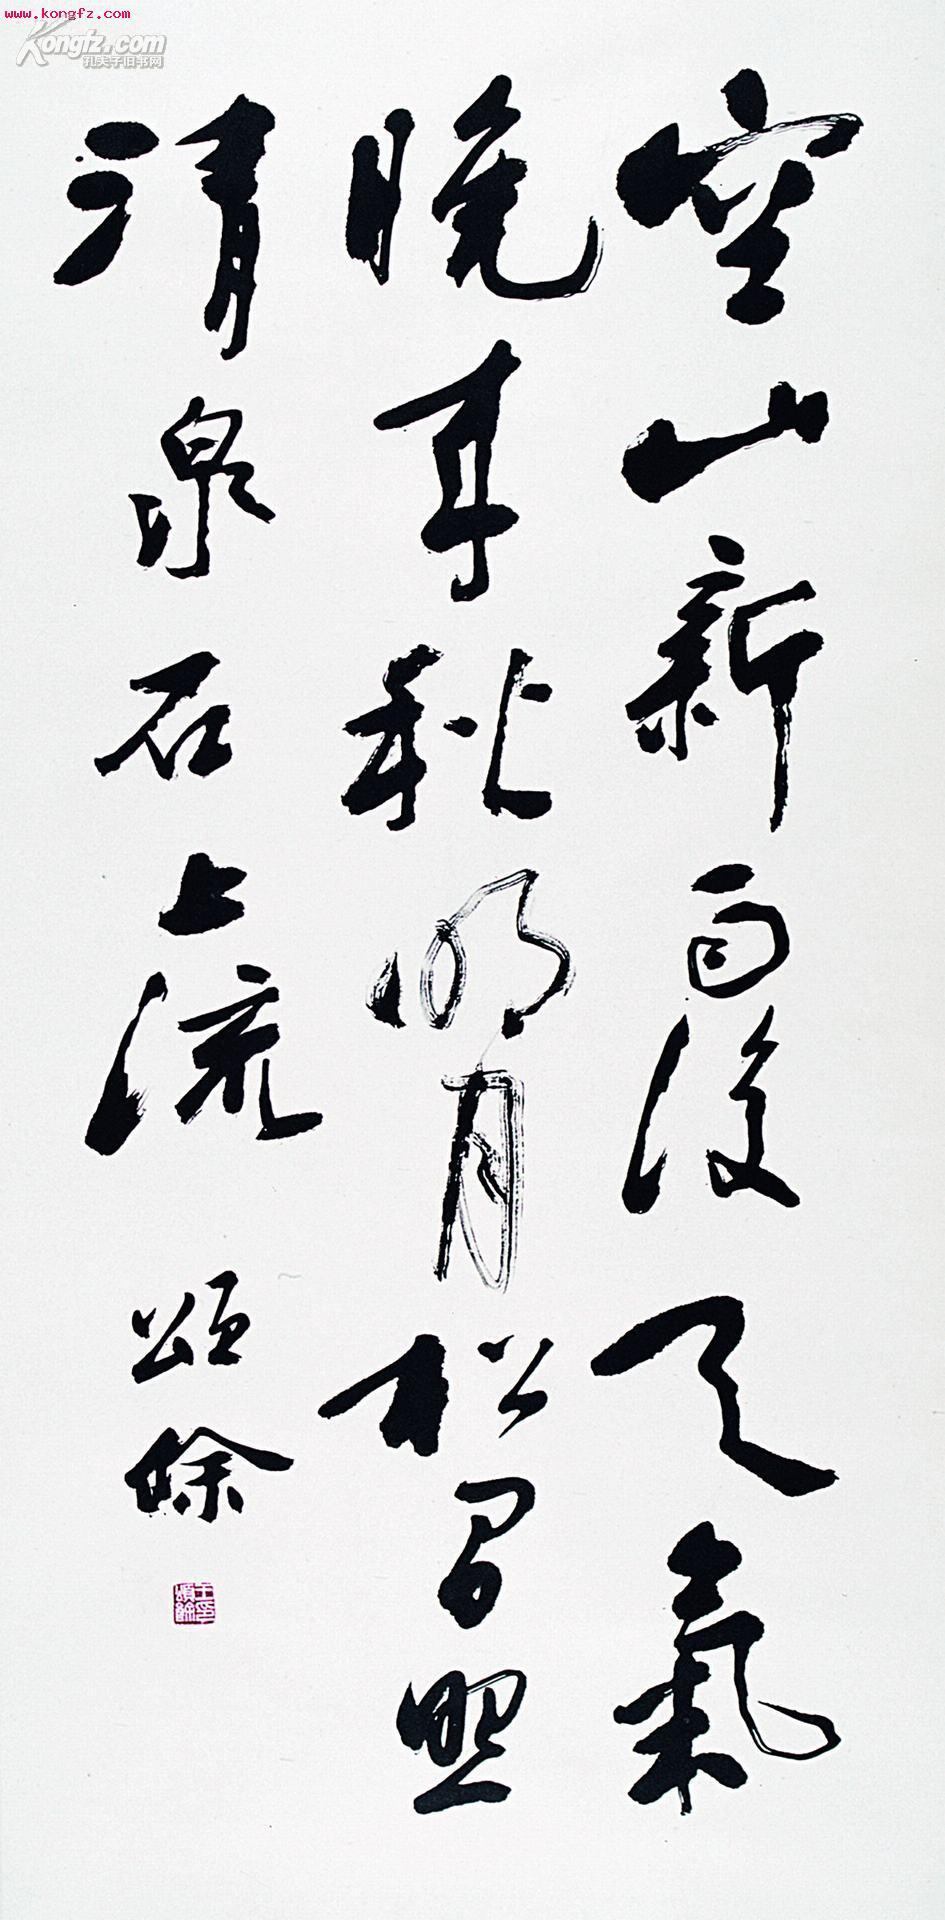 www.kongfz.com
Kongfz.com
孔夫子旧书网
空山新雨後天氣
晚来秋明月松間照
清泉石上流
頌餘
王印頌餘